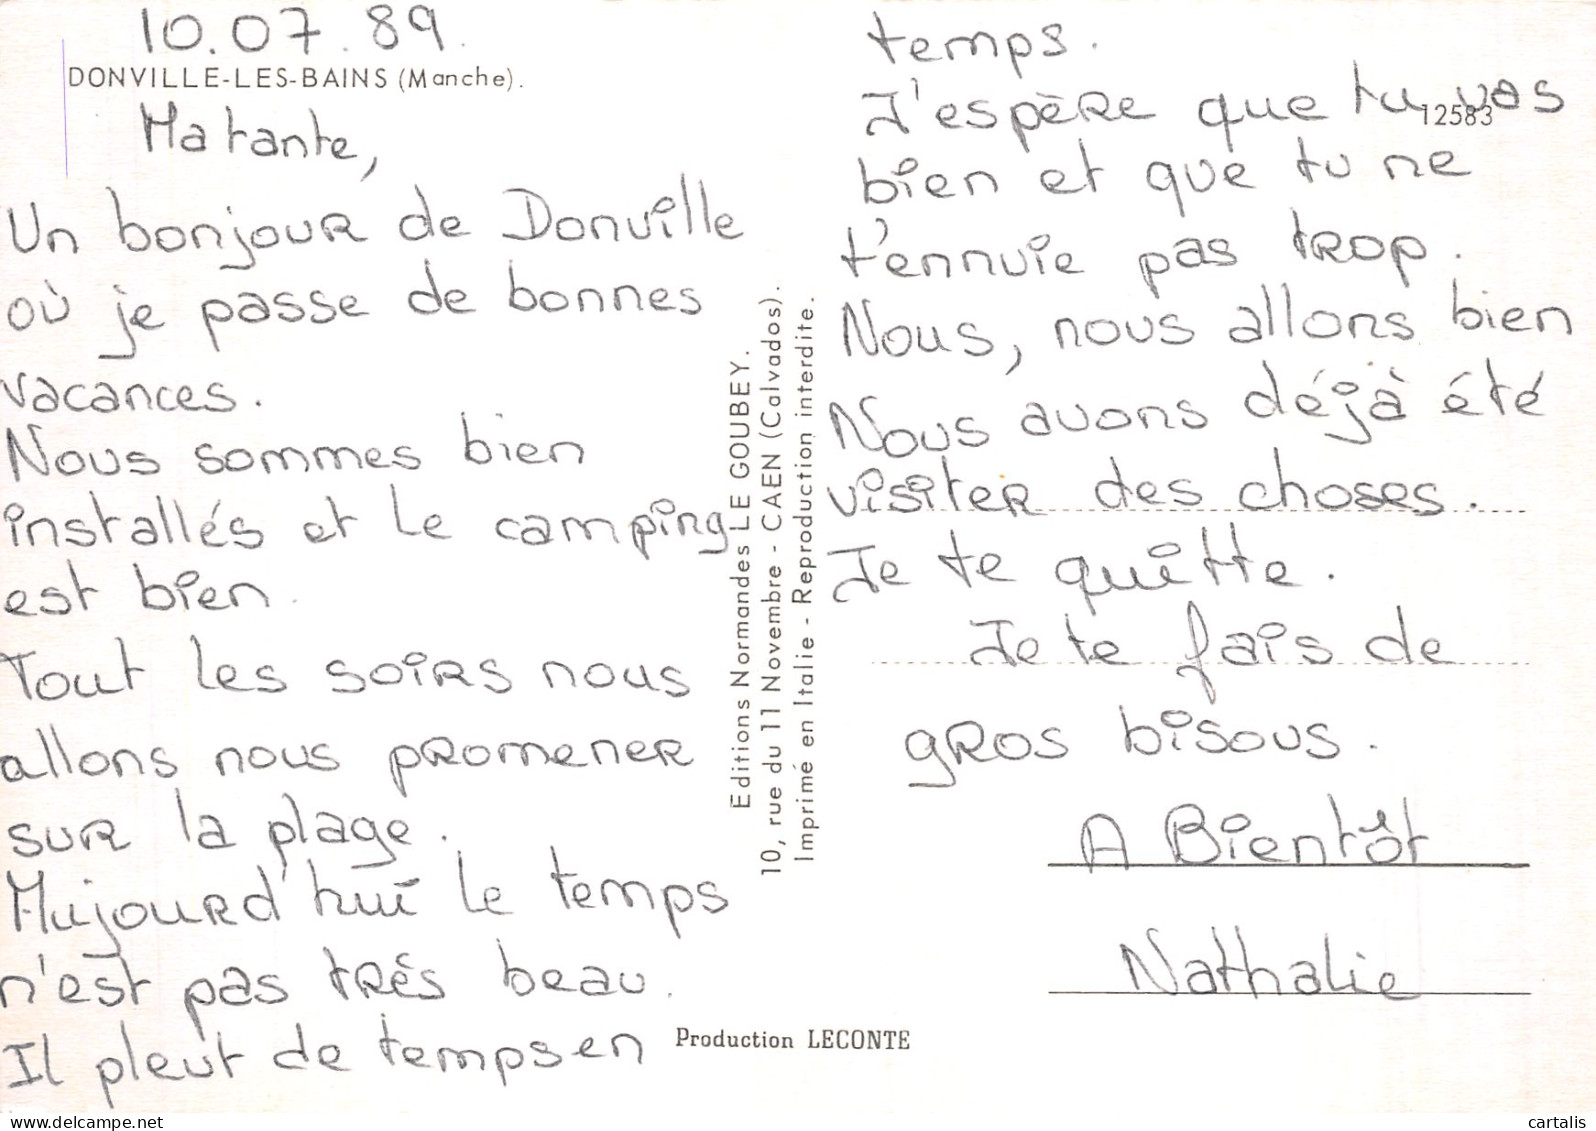 10.07.89.
DONVILLE-LES-BAINS (Manche).
Ma tante,
Un bonjour de Donville
où je passe de bonnes
vacances.
Nous sommes bien
installés et le camping
est bien.
Tout les soirs nous
allons nous promener
sur la plage.
Aujourd'hui le temps
n'est pas très beau.
Il pleut de temps en
temps.
J'espère que tu vas
12583
bien et que tu ne
t'ennuie pas trop.
Nous, nous allons bien
Nous avons déjà été
visiter des choses.
Je te quitte.
Je te fais de
gros bisous.
A Bientôt
Nathalie
Editions Normandes LE GOUBEY.
10, rue du 11 Novembre - CAEN (Calvados).
Imprimé en Italie - Reproduction interdite.
Production LECONTE
delcampe.net
cartalis